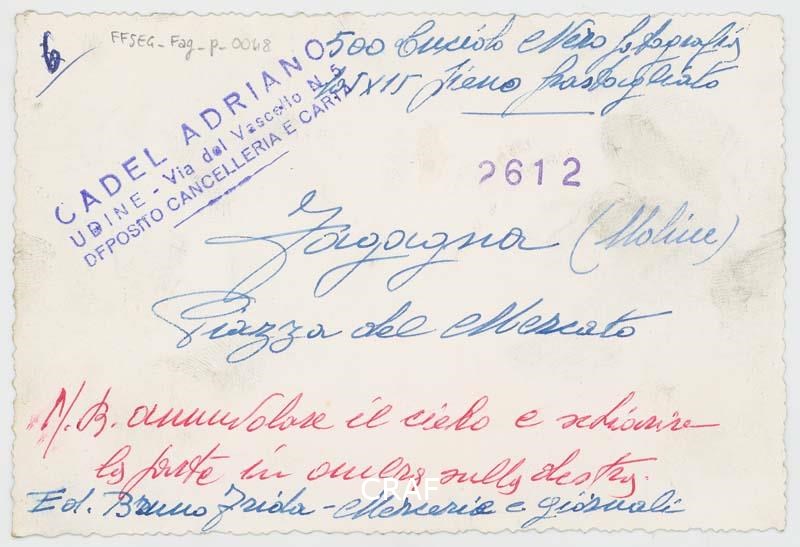 6
FFSEG_Fag_p_0048
500 Lucido Nero fotografia
10,5x15 Pieno frastagliato
CADEL ADRIANO
UDINE - Via del Vascello N. 5
DEPOSITO CANCELLERIA E CARTA
2612
Fagagna (Udine)
Piazza del Mercato
N.B. annuvolare il cielo e schiarire
la parte in ombra sulla destra.
CRAF
Ed. Bruno Zrida - Mercerie e giornali